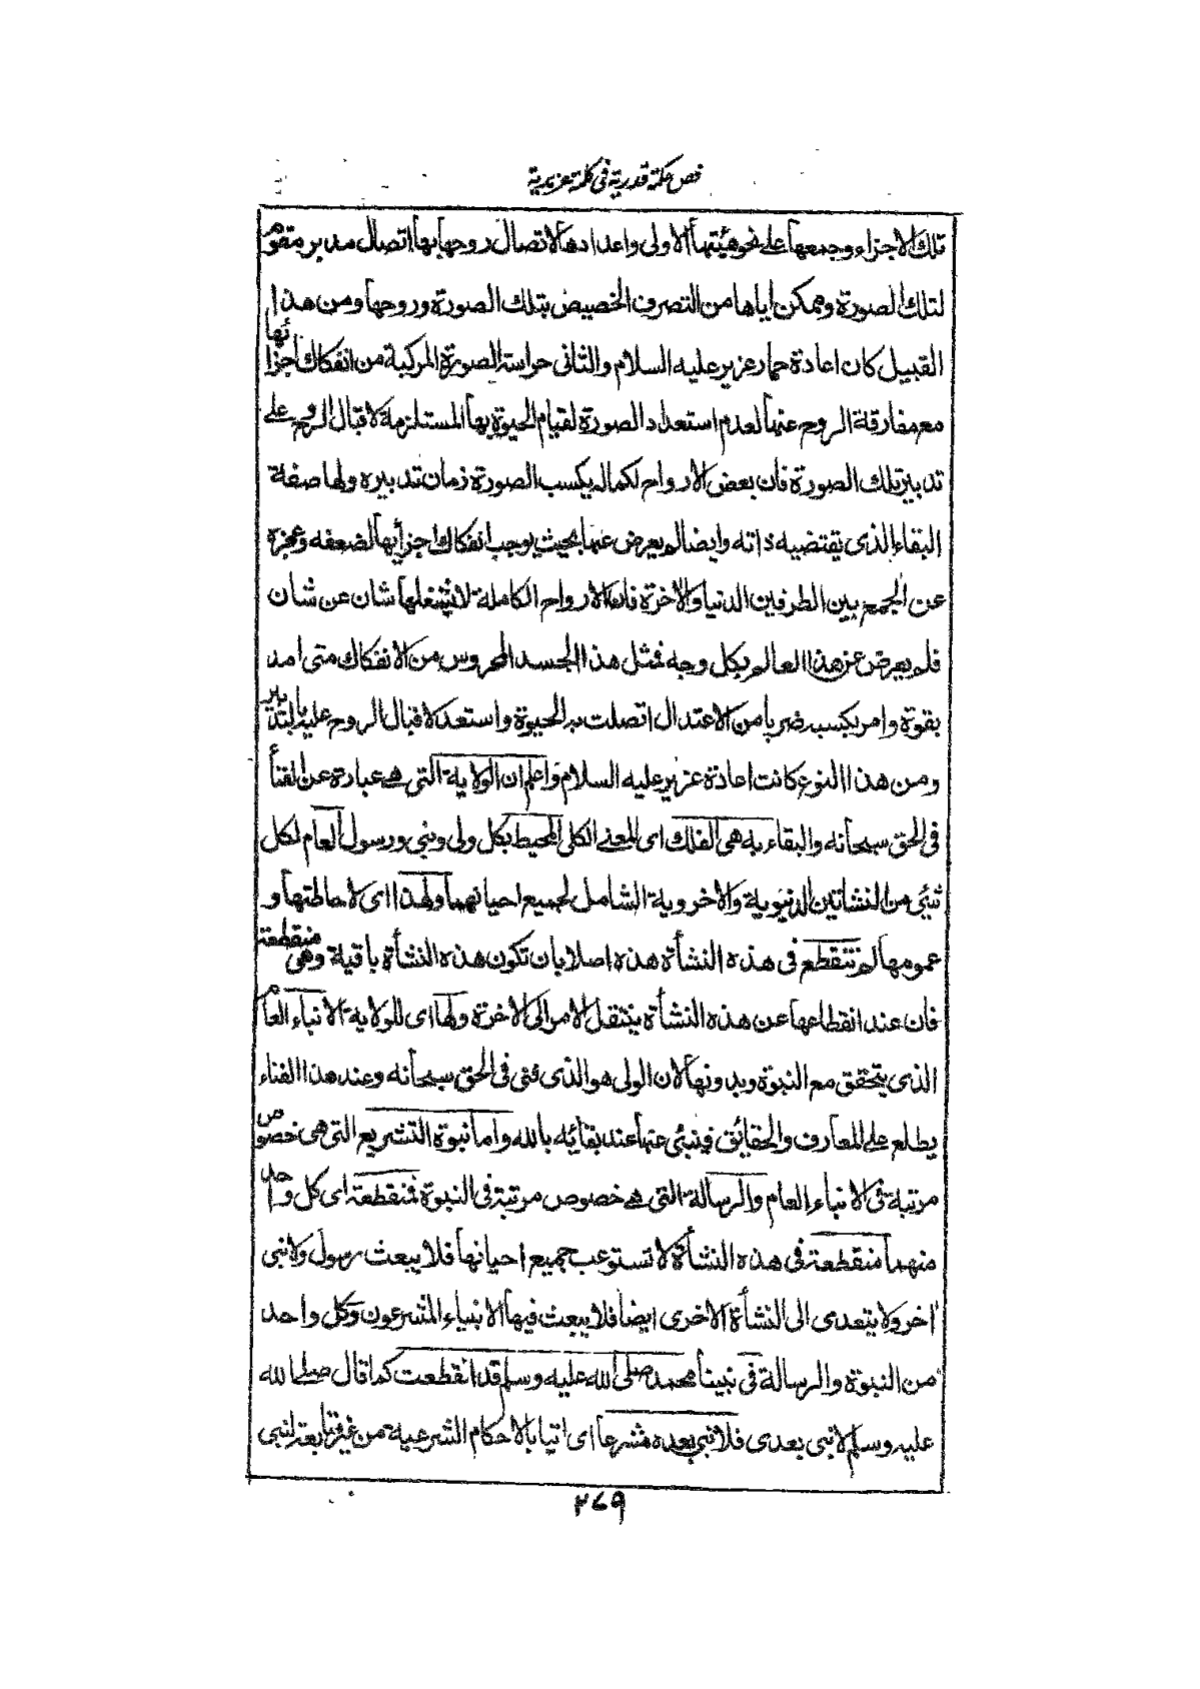 فص حكمة قدرية فى كلمة عزيرية
تلك الاجزاء وجمعها على نحو هيئتها الاولى واعدادها لاتصال روحها بها اتصال مدبر مقوم
لتلك الصورة وممكن اياها من التصرف الخصيص بتلك الصورة وروحها ومن هذا
القبيل كان اعادة حمار عزير عليه السلام والثانى حراسة الصورة المركبة من انفكاك اجزائها
مع مفارقة الروح عنها لعدم استعداد الصورة لقيام الحيوة بها المستلزمة لاقبال الروح على
تدبير تلك الصورة فان بعض الارواح لكماله يكسب الصورة زمان تدبيره ولها صفة
البقاء الذى يقتضيه ذاته وايضا لم يعرض عنها بحيث يوجب انفكاك اجزأيها لضعفه وعجزه
عن الجمع بين الطرفين الدنيا والاخرة فان الارواح الكاملة لا يشغلها شان عن شان
فلم يعرض عن هذا العالم بكل وجه فمثل هذا الجسد المحروس من الانفكاك متى امد
بقوة وامر يكسبه ضربا من الاعتدال اتصلت به الحيوة واستعد لاقبال الروح عليه بالتدبير
ومن هذا النوع كانت اعادة عزير عليه السلام واعلم ان الولاية التى هے عبارة عن الفنأ
فى الحق سبحانه والبقاء به هى الفلك اى المعنے الكلى المحيط بكل ولى ونبى ورسول العام لكل
شئ من النشأتين الدنيوية والاخروية الشامل لجميع احيانهما ولهذا اى لاحاطتها و
عمومها لم تنقطع فى هذه النشأة هذه اصلا بان تكون هذه النشأة باقية وهى منقطعة
فان عند انقطاعها عن هذه النشأة ينتقل الامر الى الاخرة ولها اى للولاية الانباء العام
الذى يتحقق مع النبوة وبدونها لان الولى هو الذى فنى فى الحق سبحانه وعند هذا الفناء
يطلع على المعارف والحقائق فينبئ عنها عند بقائه بالله واما نبوة التشريع التى هى خصوص
مرتبة فى الانباء العام والرسالة التى هے خصوص مرتبة فى النبوة فمنقطعة اى كل واحد
منهما منقطعة فى هذه النشأة لا تستوعب جميع احيانها فلا يبعث رسول ولا نبى
اخر ولا يتعدى الى النشأة الاخرى ايضا فلا يبعث فيها الانبياء المشرعون وكل واحد
من النبوة والرسالة فى نبينا محمد صلى الله عليه وسلم قد انقطعت كما قال صلى الله
عليه وسلم لا نبى بعدى فلا نبى بعده مشرعا اى اتيا بالاحكام الشرعية من غير متابعة لنبى
۲۶۹